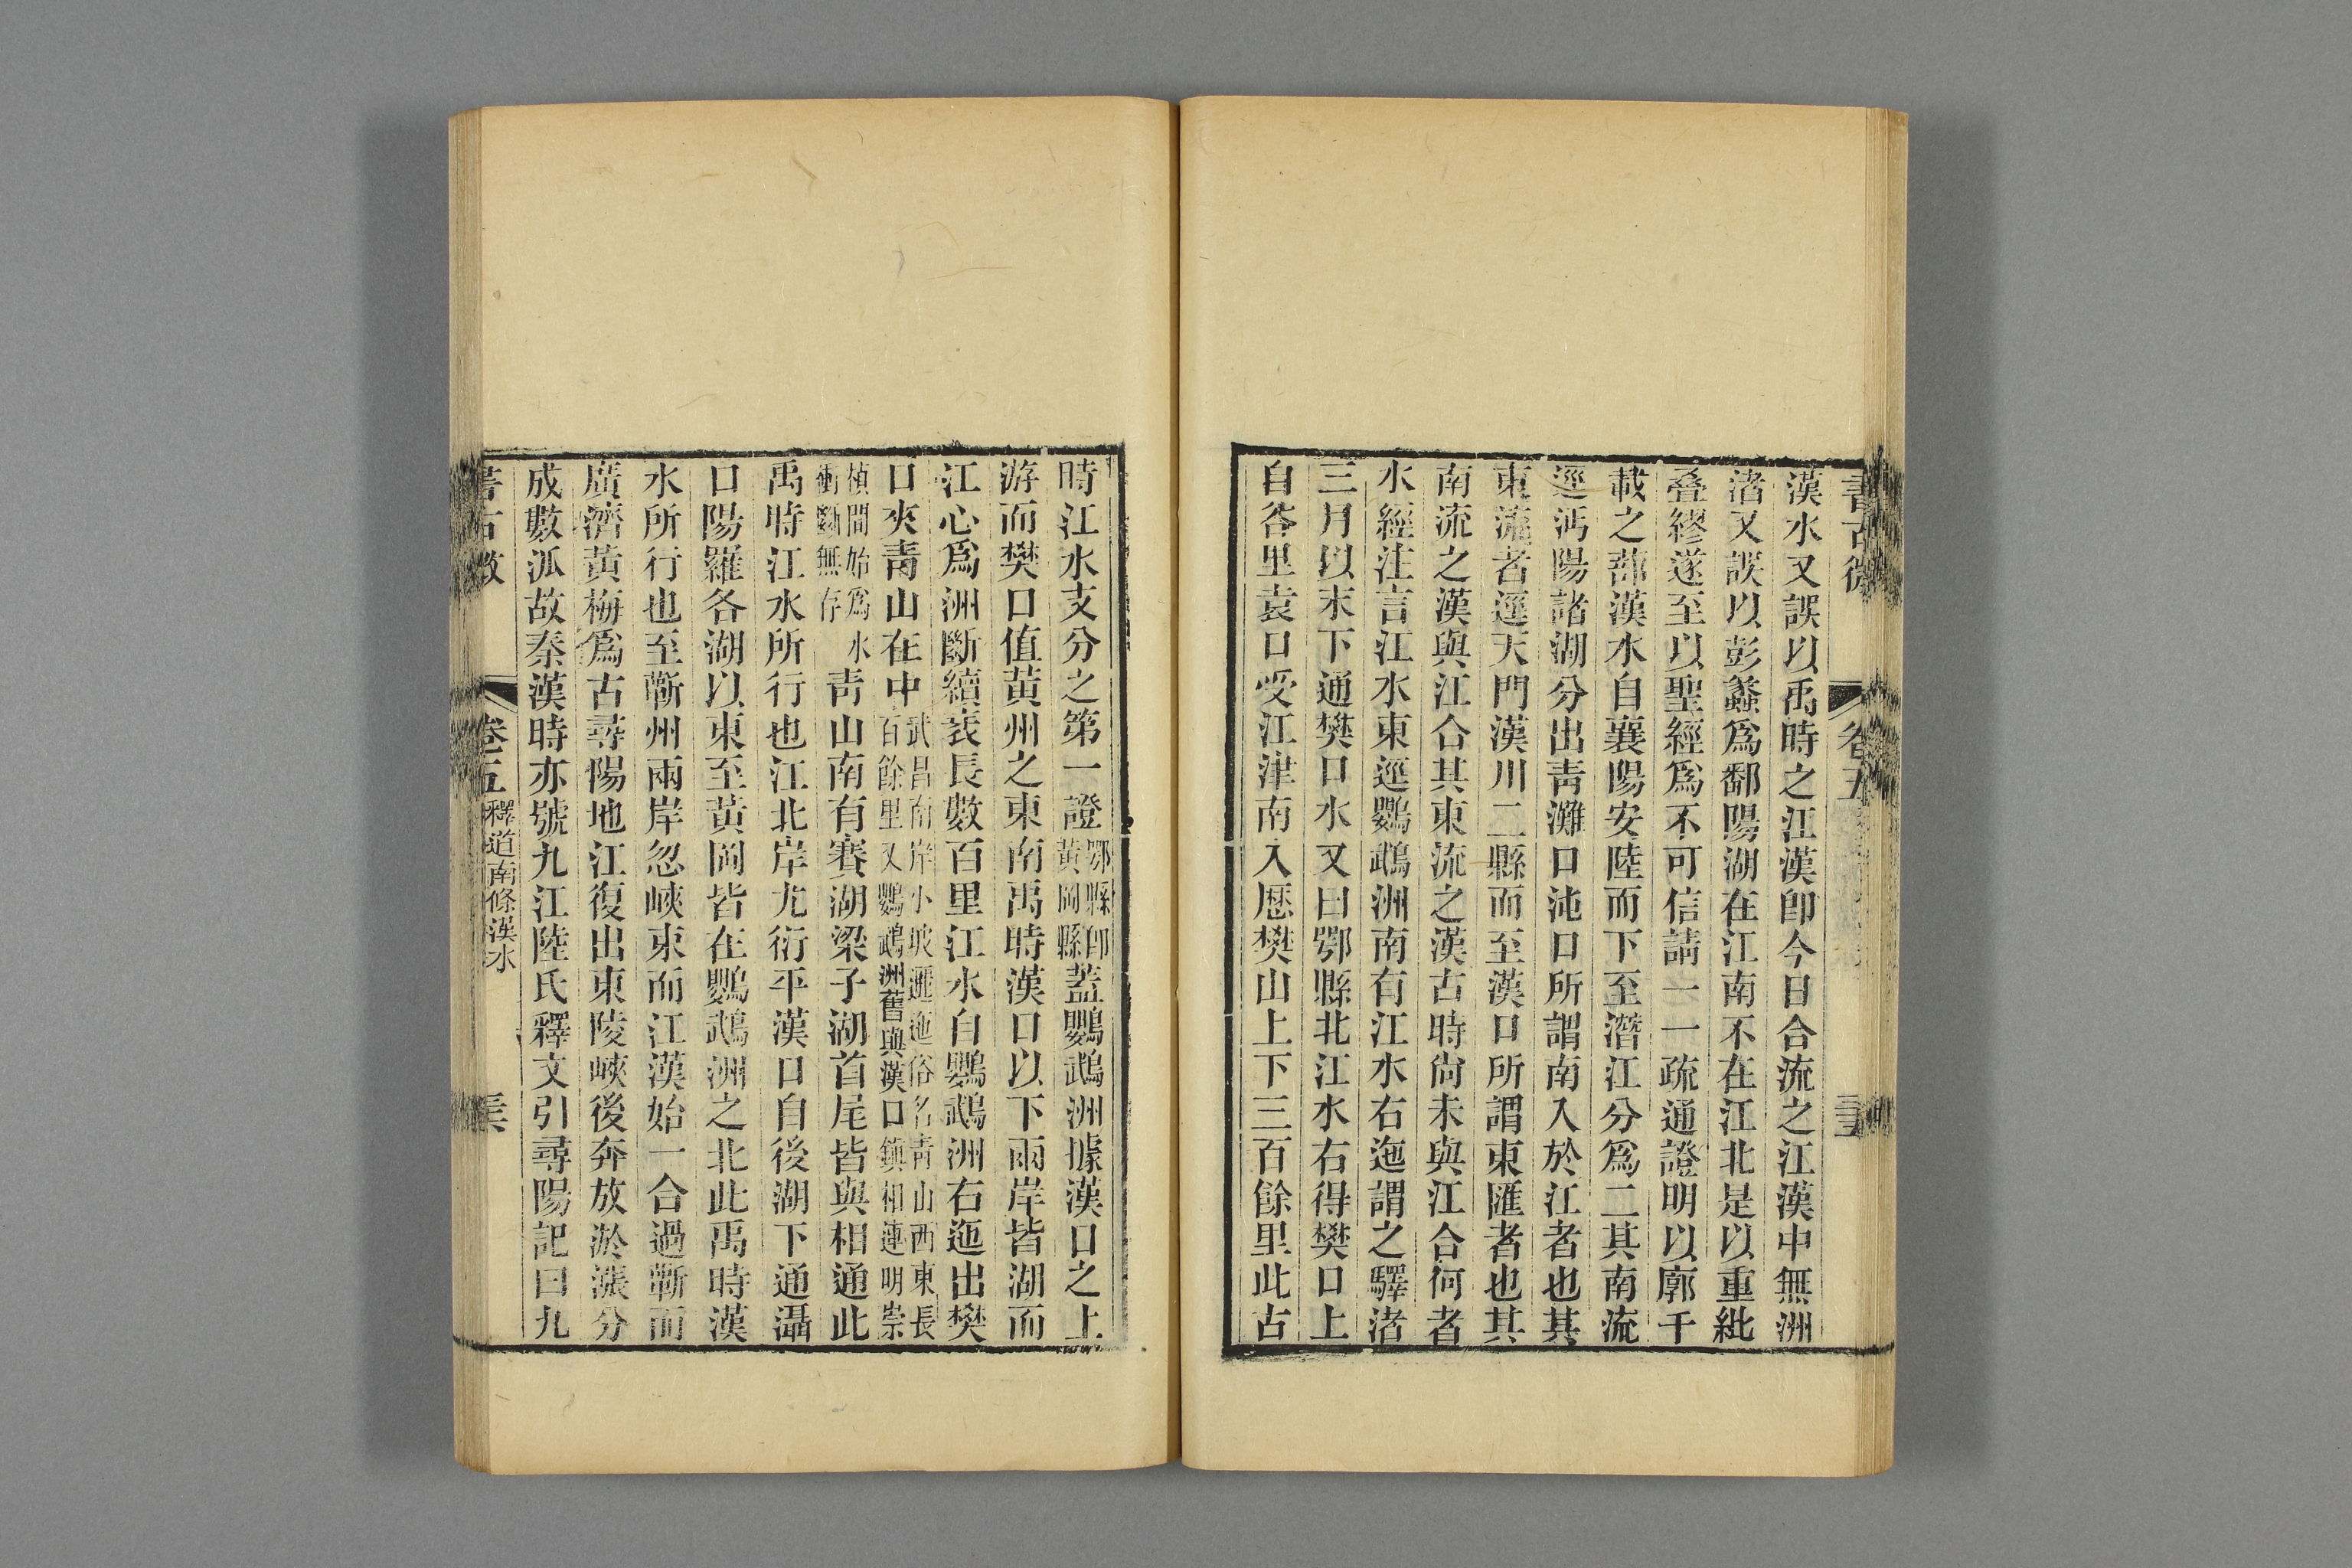 書古微
卷五
漢水又誤以禹時之江漢卽今日合流之江漢中無洲
渚又誤以彭蠡爲鄱陽湖在江南不在江北是以重紕
叠繆遂至以聖經爲不可信請一一疏通證明以廓千
載之蔀漢水自襄陽安陸而下至潛江分爲二其南流
逕沔陽諸湖分出靑灘口沌口所謂南入於江者也其
東流者逕天門漢川二縣而至漢口所謂東匯者也其
南流之漢與江合其東流之漢古時尙未與江合何者
水經注言江水東逕鸚鵡洲南有江水右迤謂之驛渚
三月以末下通樊口水又曰鄂縣北江水右得樊口上
自峇里袁口受江津南入歷樊山上下三百餘里此古
時江水支分之第一證鄂縣卽
黃岡縣蓋鸚鵡洲據漢口之上
游而樊口值黃州之東南禹時漢口以下兩岸皆湖而
江心爲洲斷續袤長數百里江水自鸚鵡洲右迤出樊
口夾靑山在中武昌南岸小坡邐迤俗名靑山西東長
百餘里又鸚鵡洲舊與漢口鎮相連明崇
楨間始爲水
衝斷無存靑山南有賽湖梁子湖首尾皆與相通此
禹時江水所行也江北岸尤衍平漢口自後湖下通灄
口陽羅各湖以東至黃岡皆在鸚鵡洲之北此禹時漢
水所行也至蘄州兩岸忽峽束而江漢始一合過蘄而
廣濟黃梅爲古尋陽地江復出東陵峽後奔放淤漲分
成數派故秦漢時亦號九江陸氏釋文引尋陽記曰九
書古微
卷五
釋道南條漢水